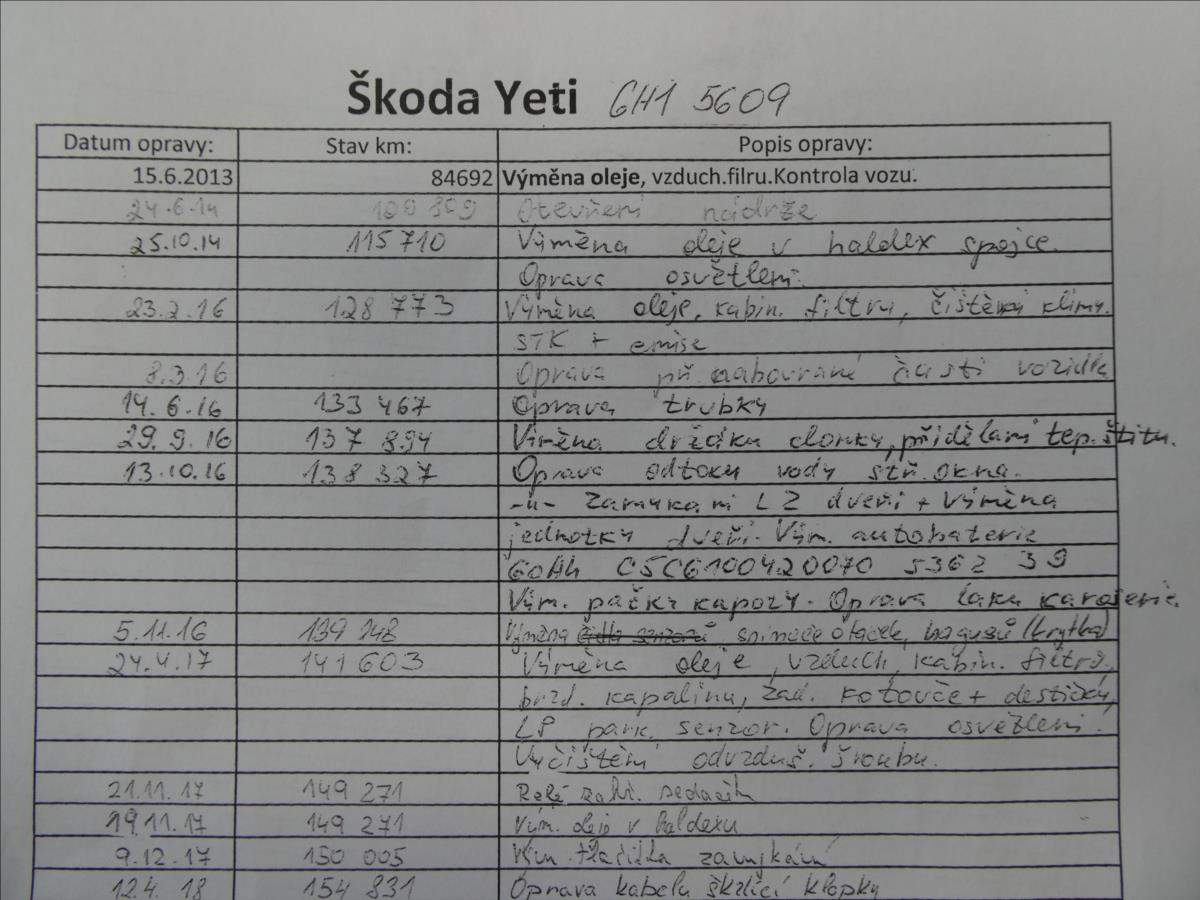 Škoda Yeti 6H1 5609
Datum opravy: Stav km: Popis opravy:
15.6.2013 84692 Výměna oleje, vzduch.filru.Kontrola vozu.
24.6.14 100 809 Otevření nádrže
25.10.14 115 710 Výměna oleje v haldex spojce.
Oprava osvětlení.
23.2.16 128 773 Výměna oleje, kabin. filtru, čištění klimy.
STK + emise
8.3.16 Oprava části vozidla
14.6.16 133 467 Oprava trubky
29.9.16 137 894 Výměna držáku clonky, přidělaní tep. štítu.
13.10.16 138 327 Oprava odtoku vody stř. okna.
-"- Zamykaní LZ dveří + Výměna
jednotky dveří. Vým. autobaterie
60Ah C5C6100420070 5362 39
Vým. páčky kapoty. Oprava laku karoserie.
5.11.16 139 748 Výměna snímače otáček, (krytka)
24.4.17 141 603 Výměna oleje, vzduch, kabin. filtrů,
brzd. kapalinu, zad. kotouče + destičky,
LP park. senzor. Oprava osvětlení.
Vyčištění odvzduš. šroubu.
21.11.17 149 271 Relé sedaček
19.11.17 149 271 Vým. oleje v haldexu
9.12.17 150 005 Vým. tlačítka zamykání
12.4.18 154 831 Oprava kabelu škrtící klapky